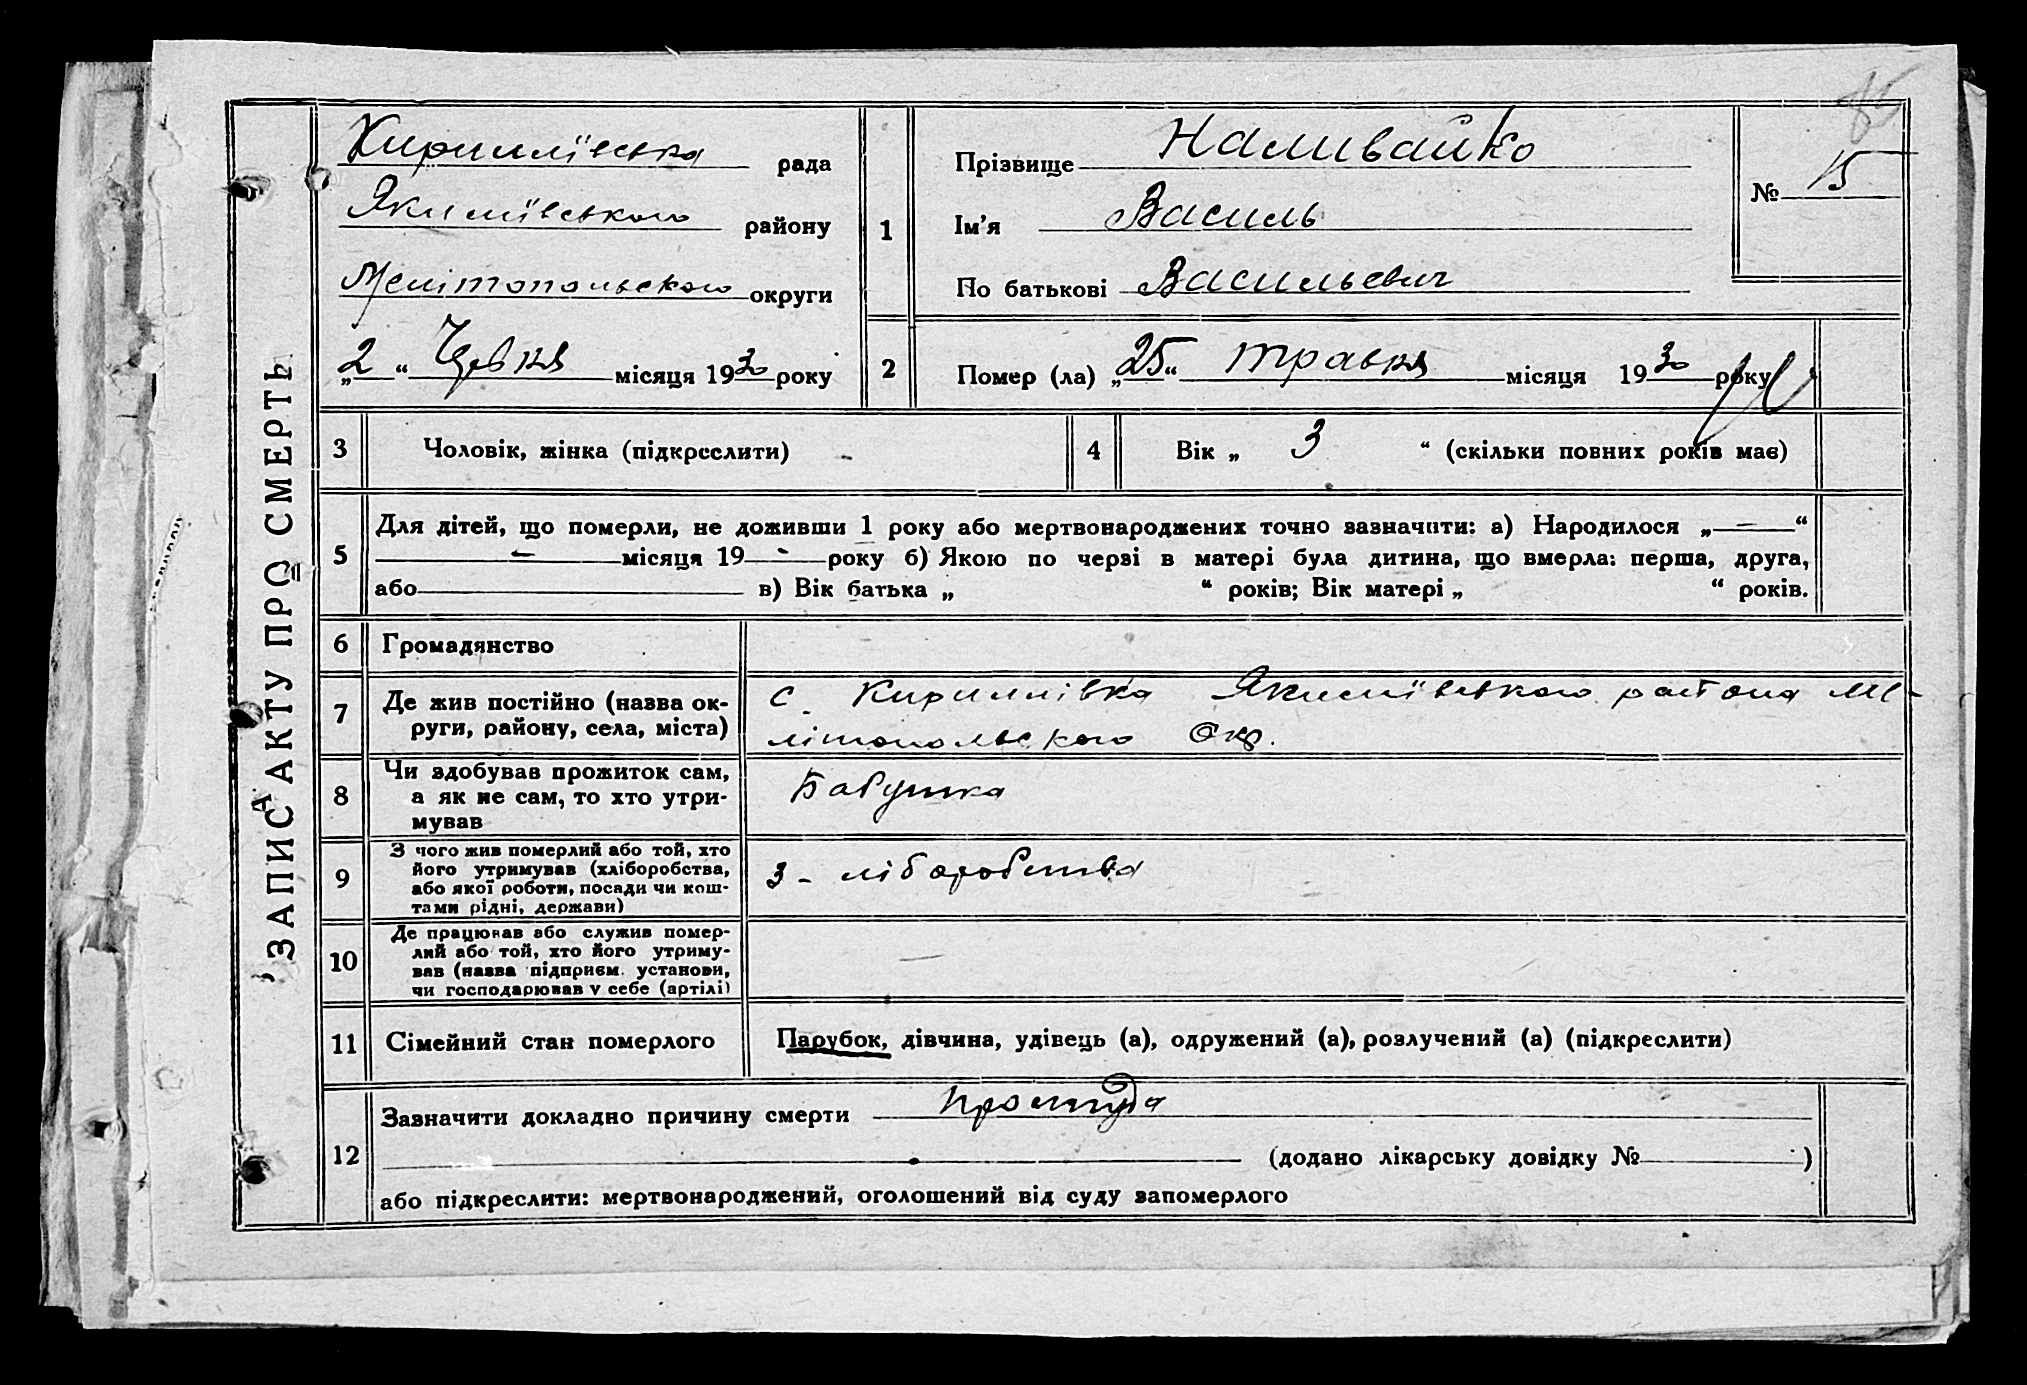 ЗАПИС АКТУ ПРО СМЕРТЬ
Кириллівська рада
Якимівського району
Мелітопольского округи
„2“ Червня місяця 1930 року
1
Прізвище Наливайко
Ім'я Василь
По батькові Васильевич
№ 15
2
Помер (ла) „25“ травня місяця 1930 року
3 Чоловік, жінка (підкреслити)
4 Вік „ 3 “ (скільки повних років має)
5
Для дітей, що померли, не доживши 1 року або мертвонароджених точно зазначити: а) Народилося „—“
— місяця 19 - року б) Якою по черзі в матері була дитина, що вмерла: перша, друга,
або в) Вік батька „ “ років; Вік матері „ “ років.
6 Громадянство
7 Де жив постійно (назва ок-
руги, району, села, міста)
с. Кириллівка Якимівського района Ме-
літопольского Окр.
8 Чи здобував прожиток сам,
а як не сам, то хто утри-
мував
Бабушка
9 З чого жив померлий або той, хто
його утримував (хліборобства,
або якої роботи, посади чи кош-
тами рідні, держави)
з - ліборобства
10 Де працював або служив помер-
лий або той, хто його утриму-
вав (назва підприєм. установи,
чи господарював у себе (артілі)
—
11 Сімейний стан померлого
Парубок, дівчина, удівець (а), одружений (а), розлучений (а) (підкреслити)
12
Зазначити докладно причину смерти простуда
(додано лікарську довідку № )
або підкреслити: мертвонароджений, оголошений від суду запомерлого